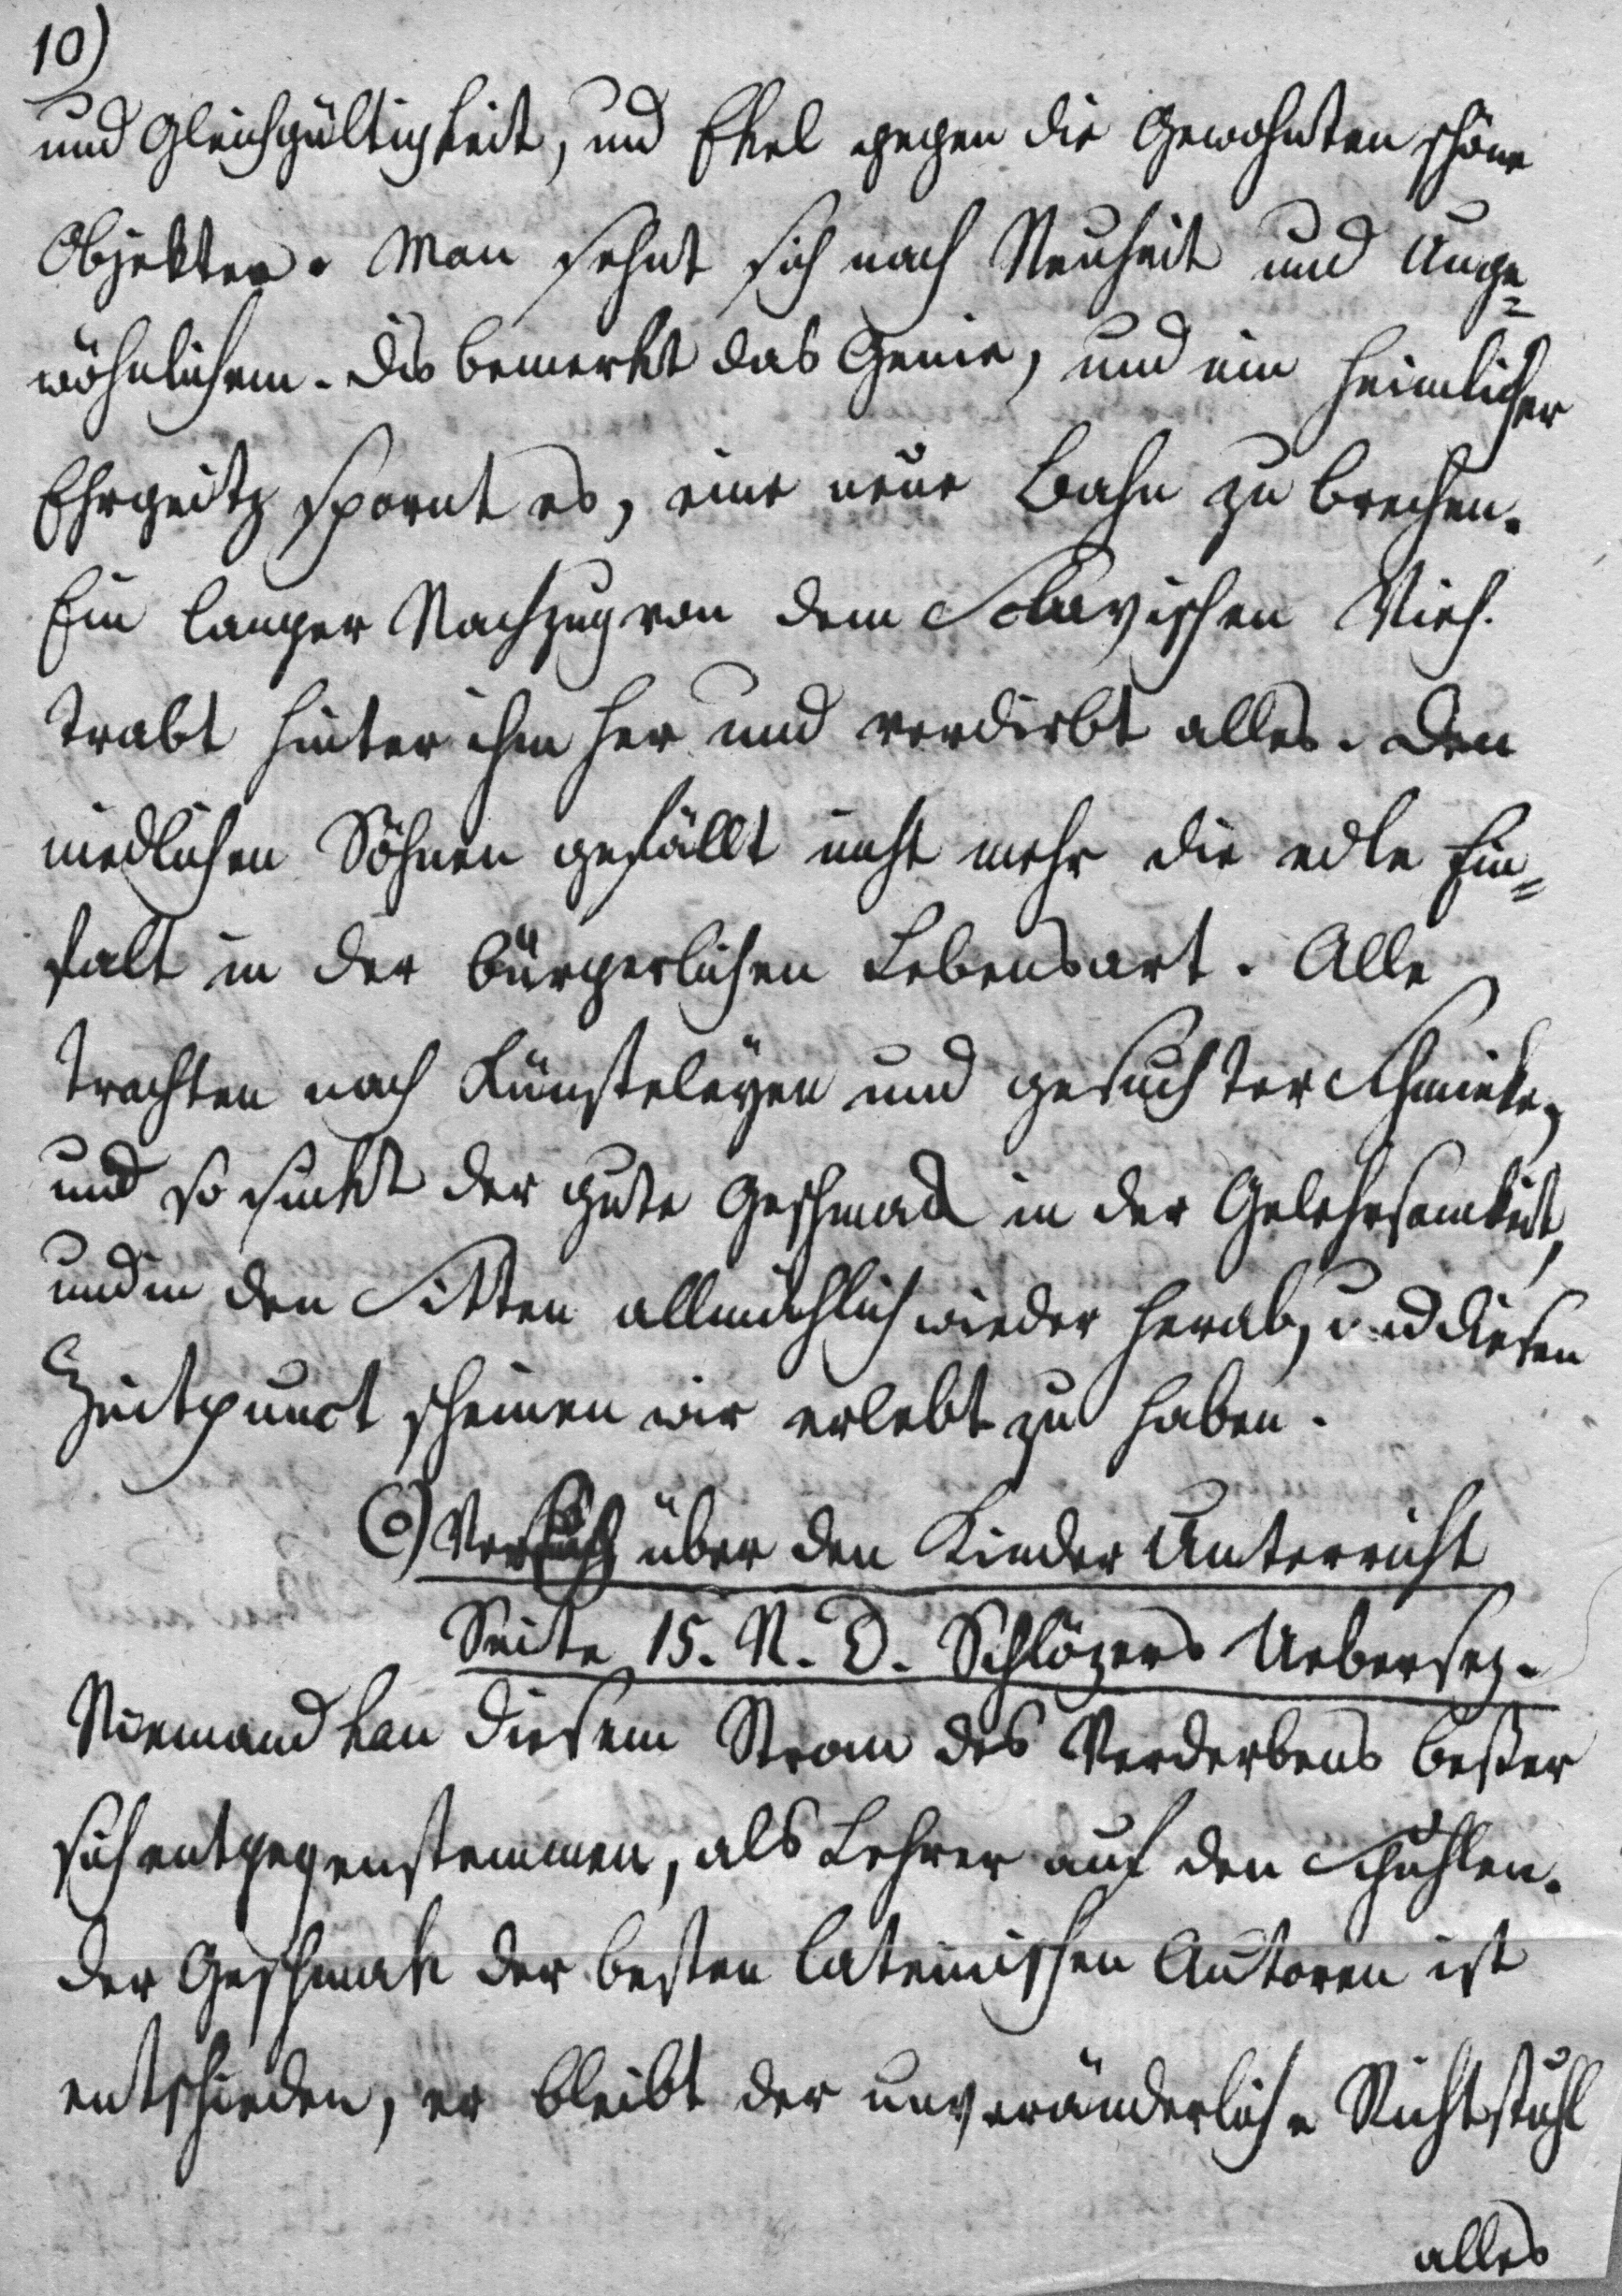 10)
und Gleichgültigkeit, und Ekel gegen die Gewohnten schöne
Objekter. Man sehnt sich nach Neuheit und Unge=
wöhnlichem. Dis bemerkt das Genie, und ein heimlicher
Ehrgeitz spornt es, eine neue Bahn zu brechen.
Ein langer Nachzug von dem Sclavischen Vieh.
trabt hinter ihm her und verdirbt alles. Den
niedlichen Söhnen gefällt nicht mehr die edle Ein=
falt in der bürgerlichen Lebensart. Alle
trachten nach Künsteleyen und gesuchter Schminke,
und so sinkt der gute Geschmack in der Gelehrsamkeit,
und in den Sitten allmächlich wieder herab, und diesen
Zeitpunct scheinen wir erlebt zu haben.
Versuch über den Kinder Unterricht
Seite 15. N. D. Schlözers Uebersez.
Niemand kan diesem Strom des Verderbens beßer
sich entgegenstemmen, als Lehrer auf den Schuhlen.
der Geschmak der besten lateinischen Autoren ist
entschieden, er bleibt der unveränderliche Richtstuhl
alles